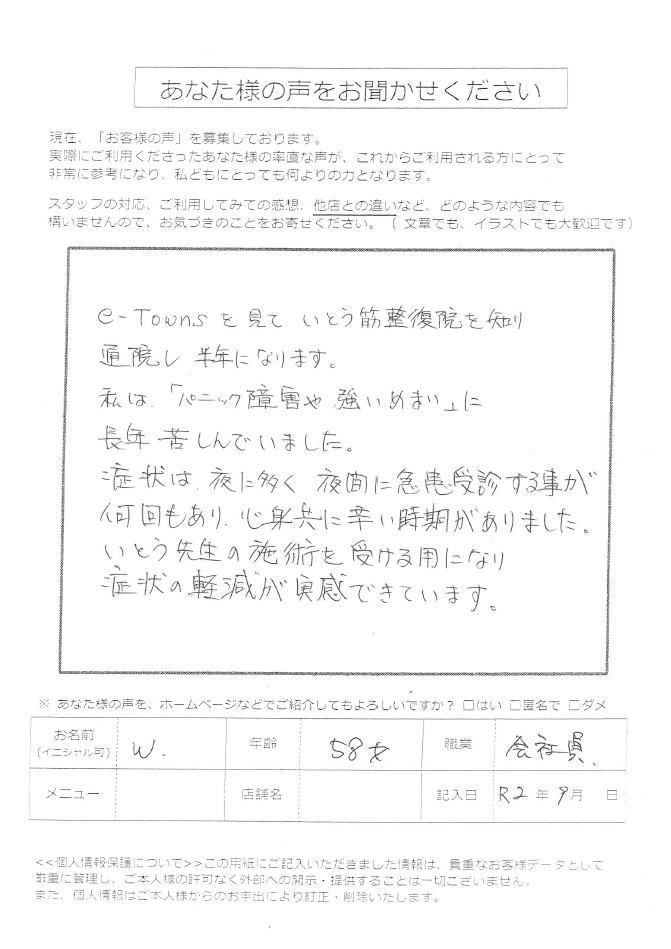 あなた様の声をお聞かせください
現在、「お客様の声」を募集しております。
実際にご利用くださったあなた様の率直な声が、これからご利用される方にとって
非常に参考になり、私どもにとっても何よりの力となります。
スタッフの対応、ご利用してみての感想、他店との違いなど、どのような内容でも
構いませんので、お気づきのことをお寄せください。（ 文章でも、イラストでも大歓迎です）
e-Towns を見て いとう筋整復院を知り
通院し 半年になります。
私は、「パニック障害や 強いめまい」に
長年 苦しんでいました。
症状は、夜に多く 夜間に急患受診する事が
何回もあり、心身共に辛い時期がありました。
いとう先生の施術を受ける用になり
症状の軽減が実感できています。
※ あなた様の声を、ホームページなどでご紹介してもよろしいですか？ □はい □匿名で □ダメ
お名前 (イニシャル可) W. 年齢 58才 職業 会社員.
メニュー 店舗名 記入日 R2 年 9月 日
<<個人情報保護について>>この用紙にご記入いただきました情報は、貴重なお客様データとして
厳重に管理し、ご本人様の許可なく外部への開示・提供することは一切ございません。
また、個人情報はご本人様からのお申出により訂正・削除いたします。